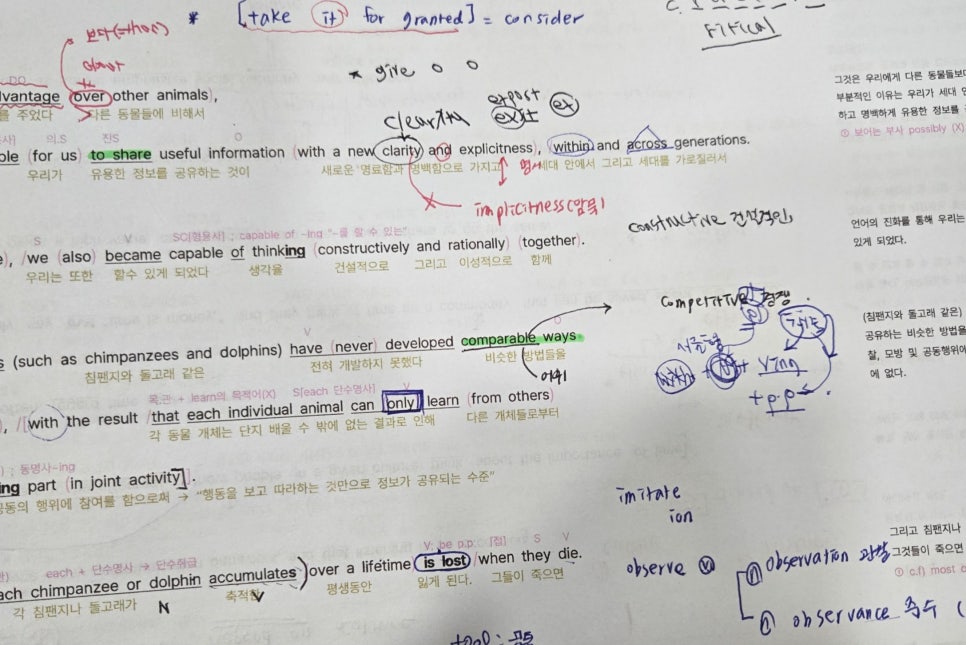 * [take it for granted] = consider
보다(=than)
* give O O
DO
vantage over other animals),
을 주었다 다른 동물들에 비해서
clearity
exist
ex
의.S 진S O
ble (for us) to share useful information (with a new clarity and explicitness), (within and across generations.
우리가 유용한 정보를 공유하는 것이 새로운 명료함과 명백함으로 가지고 세대 안에서 그리고 세대를 가로질러서
implicitness(암묵)
constructive 건설적인
S V SC[형용사] ; capable of ~ing "~를 할 수 있는"
), /we (also) became capable of thinking (constructively and rationally) (together).
우리는 또한 할수 있게 되었다 생각을 건설적으로 그리고 이성적으로 함께
competitive 경쟁
V O
s (such as chimpanzees and dolphins) have (never) developed comparable ways
침팬지와 돌고래 같은 전혀 개발하지 못했다 비슷한 방법들을
어휘
with + N + Ving
+ p.p
목.관 + learn의 목적어(X) S[each 단수명사] V
), /[with the result /that each individual animal can only learn (from others)
각 동물 개체는 단지 배울 수 밖에 없는 결과로 인해 다른 개체들로부터
) ; 동명사-ing
ing part (in joint activity)].
공동의 행위에 참여를 함으로써 → "행동을 보고 따라하는 것만으로 정보가 공유되는 수준"
imitate
ion
each + 단수명사 → 단수취급 V; be p.p. [접] S V
ach chimpanzee or dolphin accumulates) over a lifetime is lost /when they die.
각 침팬지나 돌고래가 축적한 평생동안 잃게 된다. 그들이 죽으면
N V
observe ⓥ
ⓝ observation 관찰
ⓝ observance 준수 (
그것은 우리에게 다른 동물들보다
부분적인 이유는 우리가 세대 안
하고 명백하게 유용한 정보를 공
① 보어는 부사 possibly (X)
언어의 진화를 통해 우리는
있게 되었다.
(침팬지와 돌고래 같은)
공유하는 비슷한 방법을
찰, 모방 및 공동행위에
에 없다.
그리고 침팬지나
그것들이 죽으면
① c.f) most b